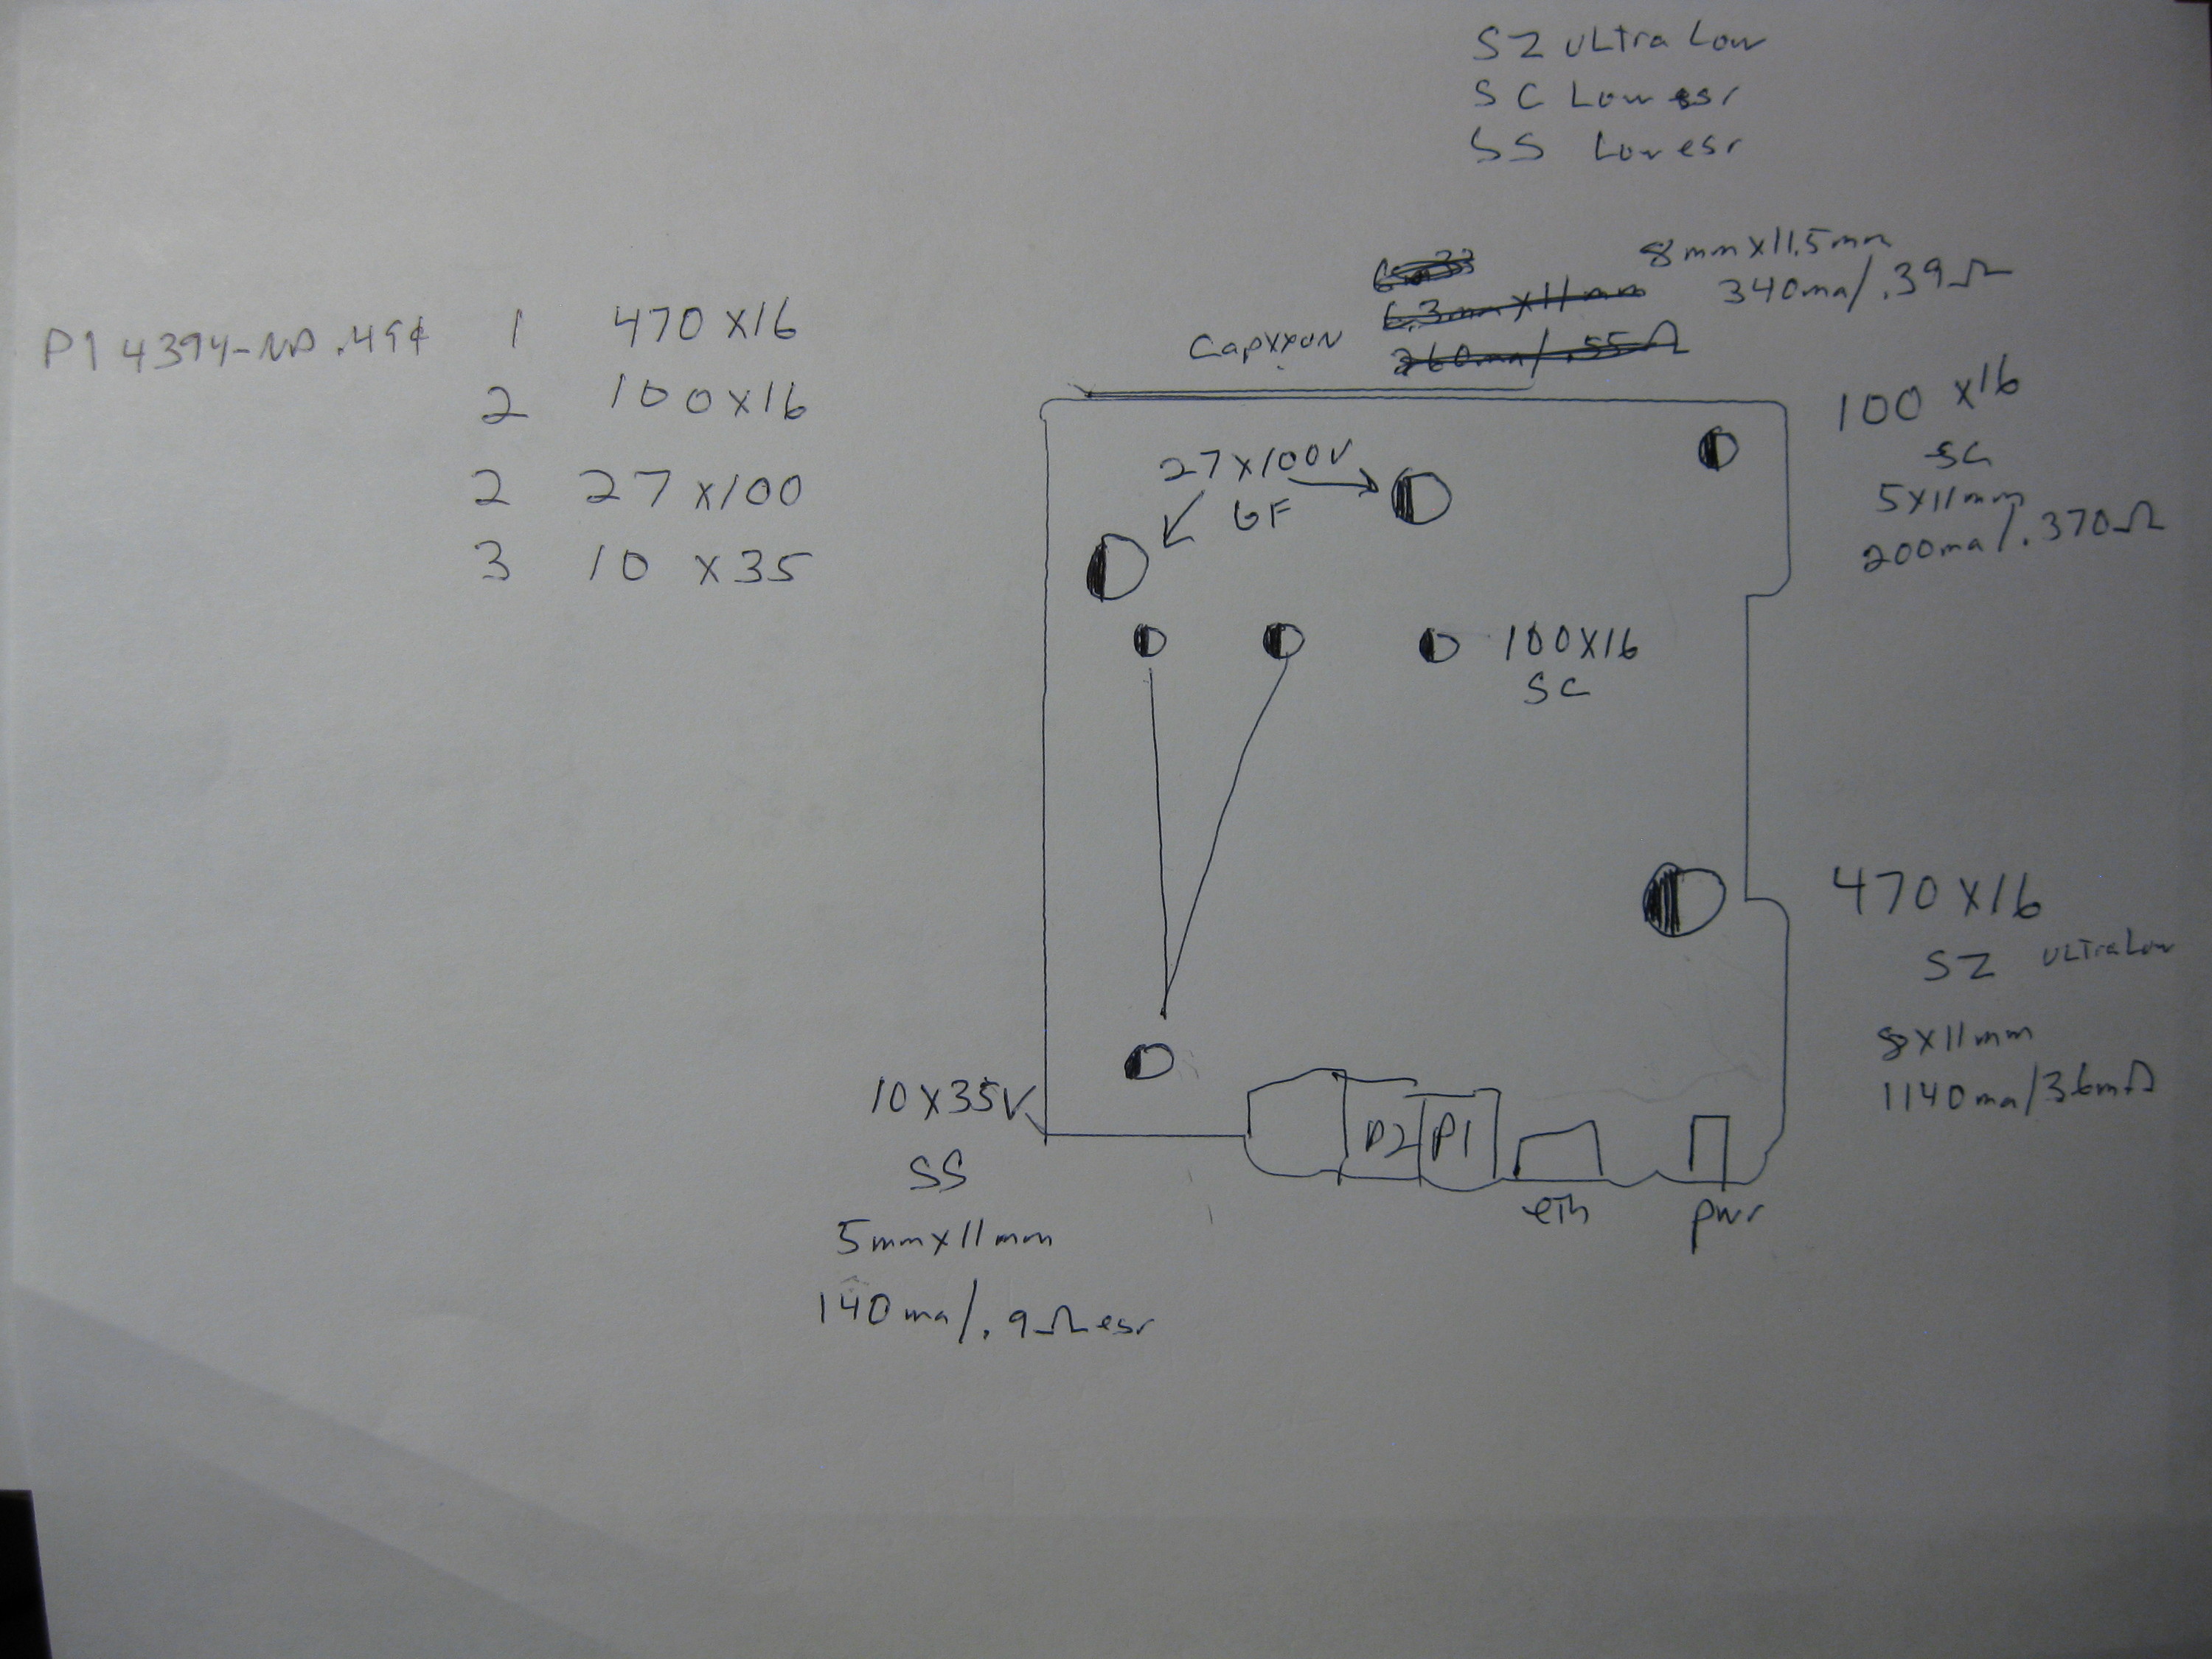 SZ ULtra Low
SC Low esr
SS Low esr
8mm x 11.5mm
340ma/.39Ω
Capxxon
6.3mm x 11mm
260ma/.55Ω
P14394-ND .49¢ 1 470 x16
2 100 x16
2 27 x100
3 10 x35
27 x100V
GF
100 x16
SC
5x11mm
200ma/.370Ω
100X16
SC
470 X16
SZ ULtra Low
8X11mm
1140ma/36mΩ
10 X35V
SS
5mmx11mm
140ma/.9Ω esr
P2 P1
eth
pwr